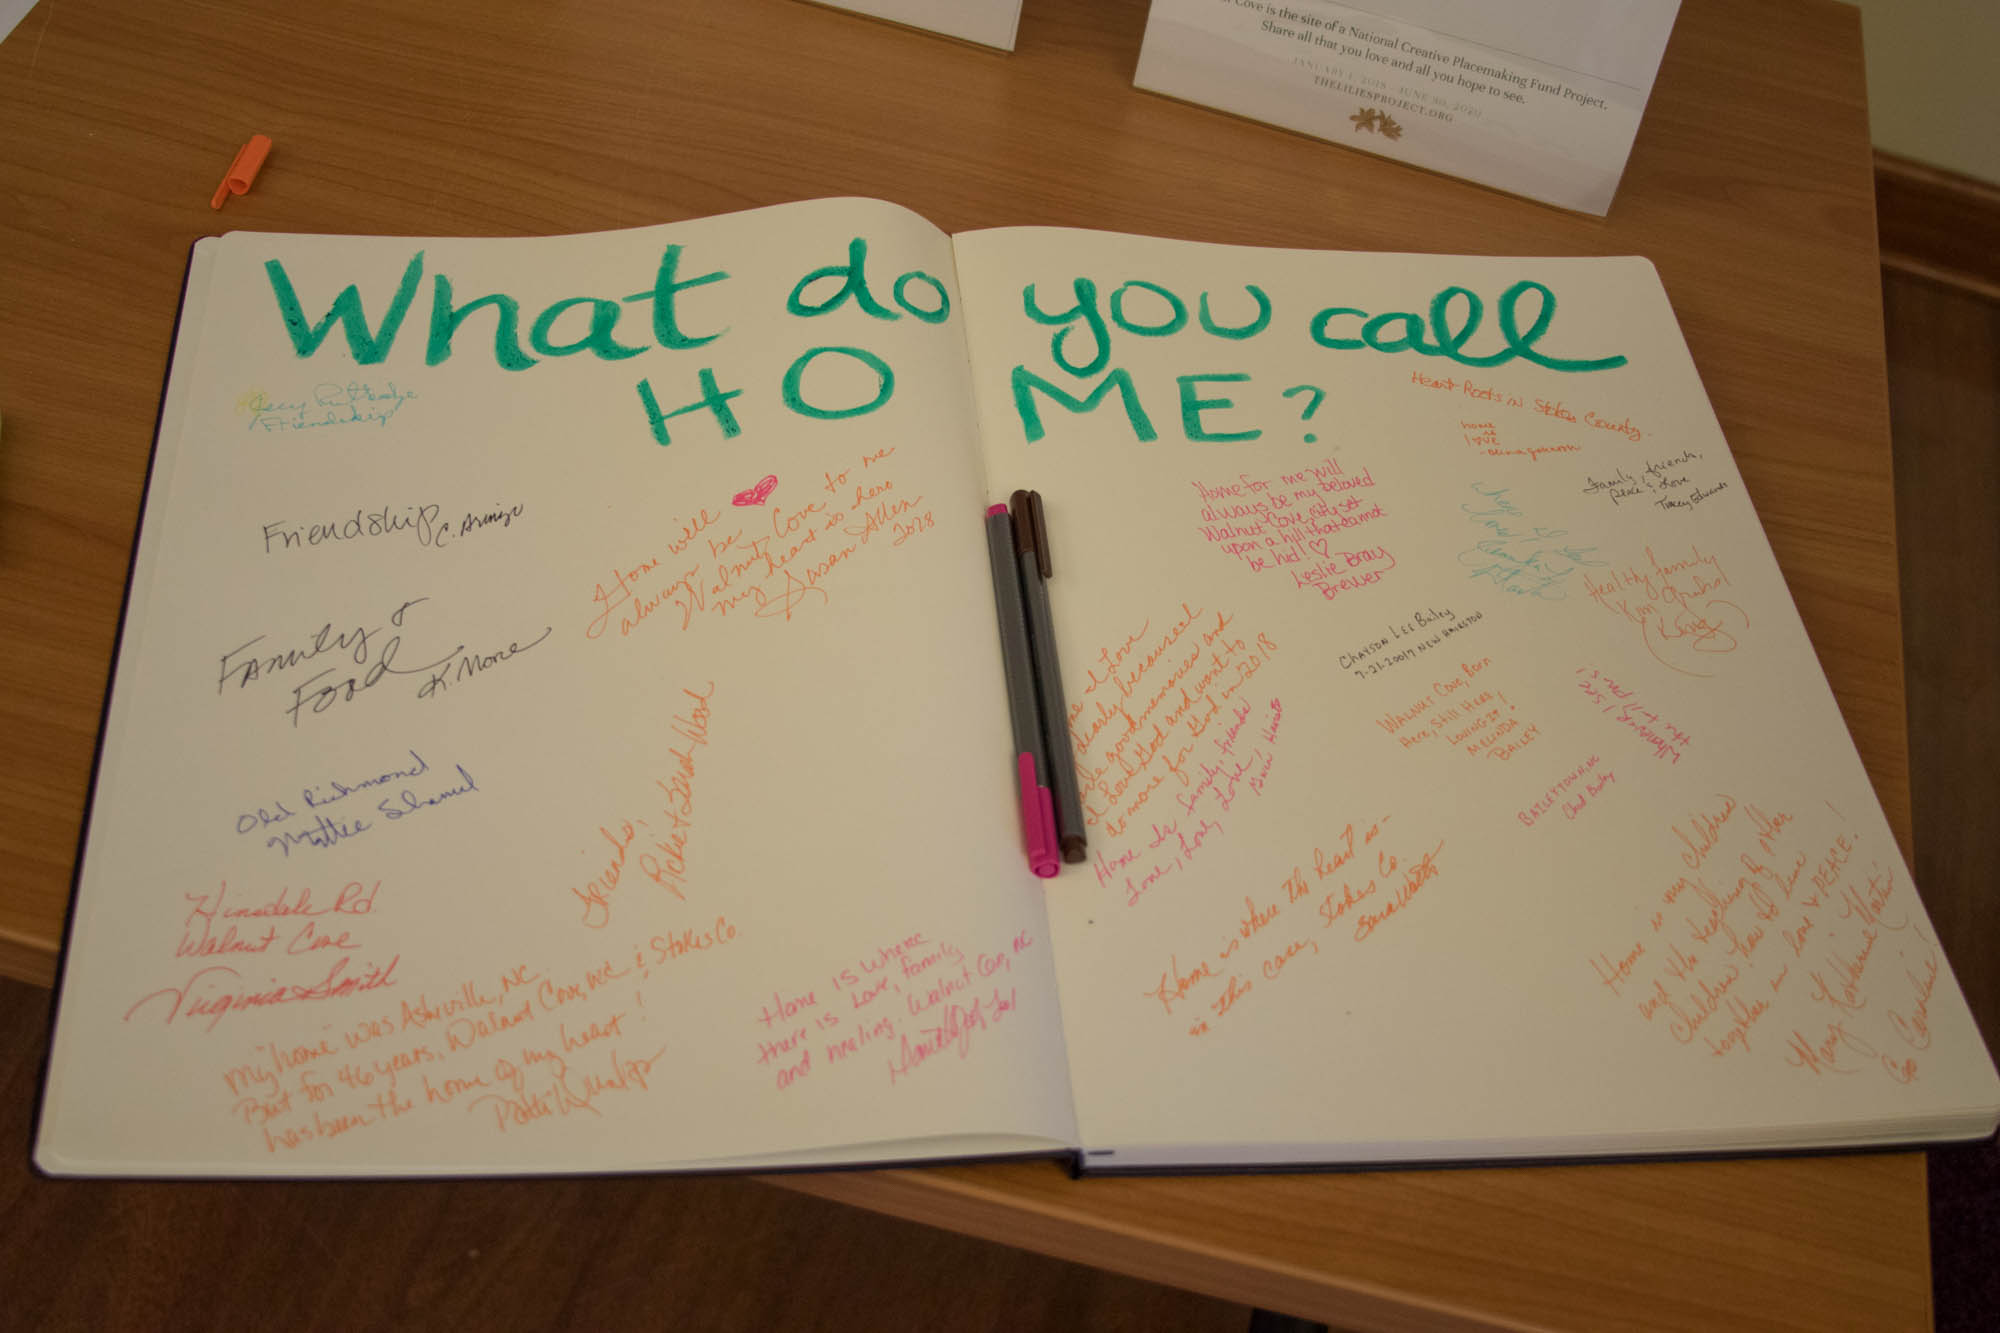 Cove is the site of a National Creative Placemaking Fund Project.
Share all that you love and all you hope to see.
JANUARY 1, 2018 - JUNE 30, 2020
THELILIESPROJECT.ORG
What do you call
HOME?
Friendship
Friendship
Family &
Food
K. More
Old Richmond
Mattie Shamel
Hinsdale Rd
Walnut Cove
Virginia Smith
Home will
always be
Walnut Cove to me
my heart is here
Susan Allen
Friends,
Rickie & Sarah Wood
my "home" was Asheville, NC
But for 46 years, Walnut Cove, NC & Stokes Co
has been the home of my heart!
Home is where
there is Love, family
and healing. Walnut Cove, NC
Heart Roots in Stokes County.
home
is
love
Family, friends,
peace & love
Tracey Edwards
Home for me will
always be my beloved
Walnut Cove city set
upon a hill that cannot
be hid! ♡
Leslie Bray
Brewer
Healthy family
Kim
Chayson Lee Bailey
7-21-20017
Walnut Cove, Born
Here, Still Here
Loving It!
Melinda
Bailey
Baileytown, NC
Chad Bailey
I Love
dearly because
good memories and
I Love God and want to
do more for God in 2018
Home is family, friends
Love, Love, Love, Love
Home is where the heart is -
in this case, Stokes Co.
Home is my children
and the teaching of other
children how to live
together in love & PEACE!
Mary Katherine Martin
Go